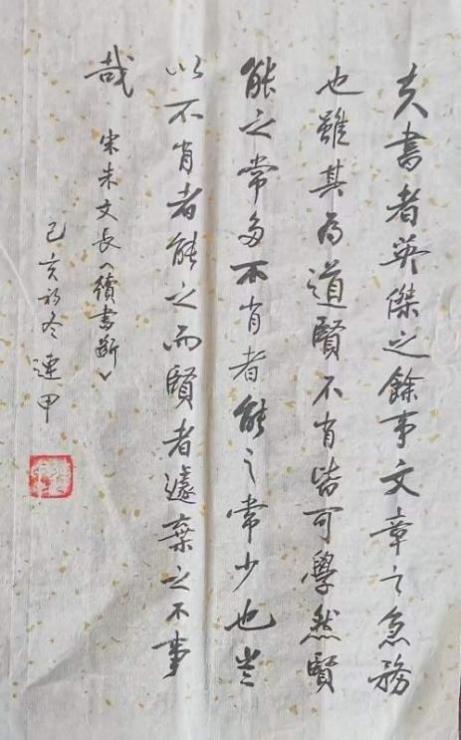 夫書者英傑之餘事文章之急務
也雖其為道賢不肖皆可學然賢
能之常多不肖者能之常少也豈
以不肖者能之而賢者遽棄之不事
哉 宋朱文長《續書斷》
己亥初冬 連甲